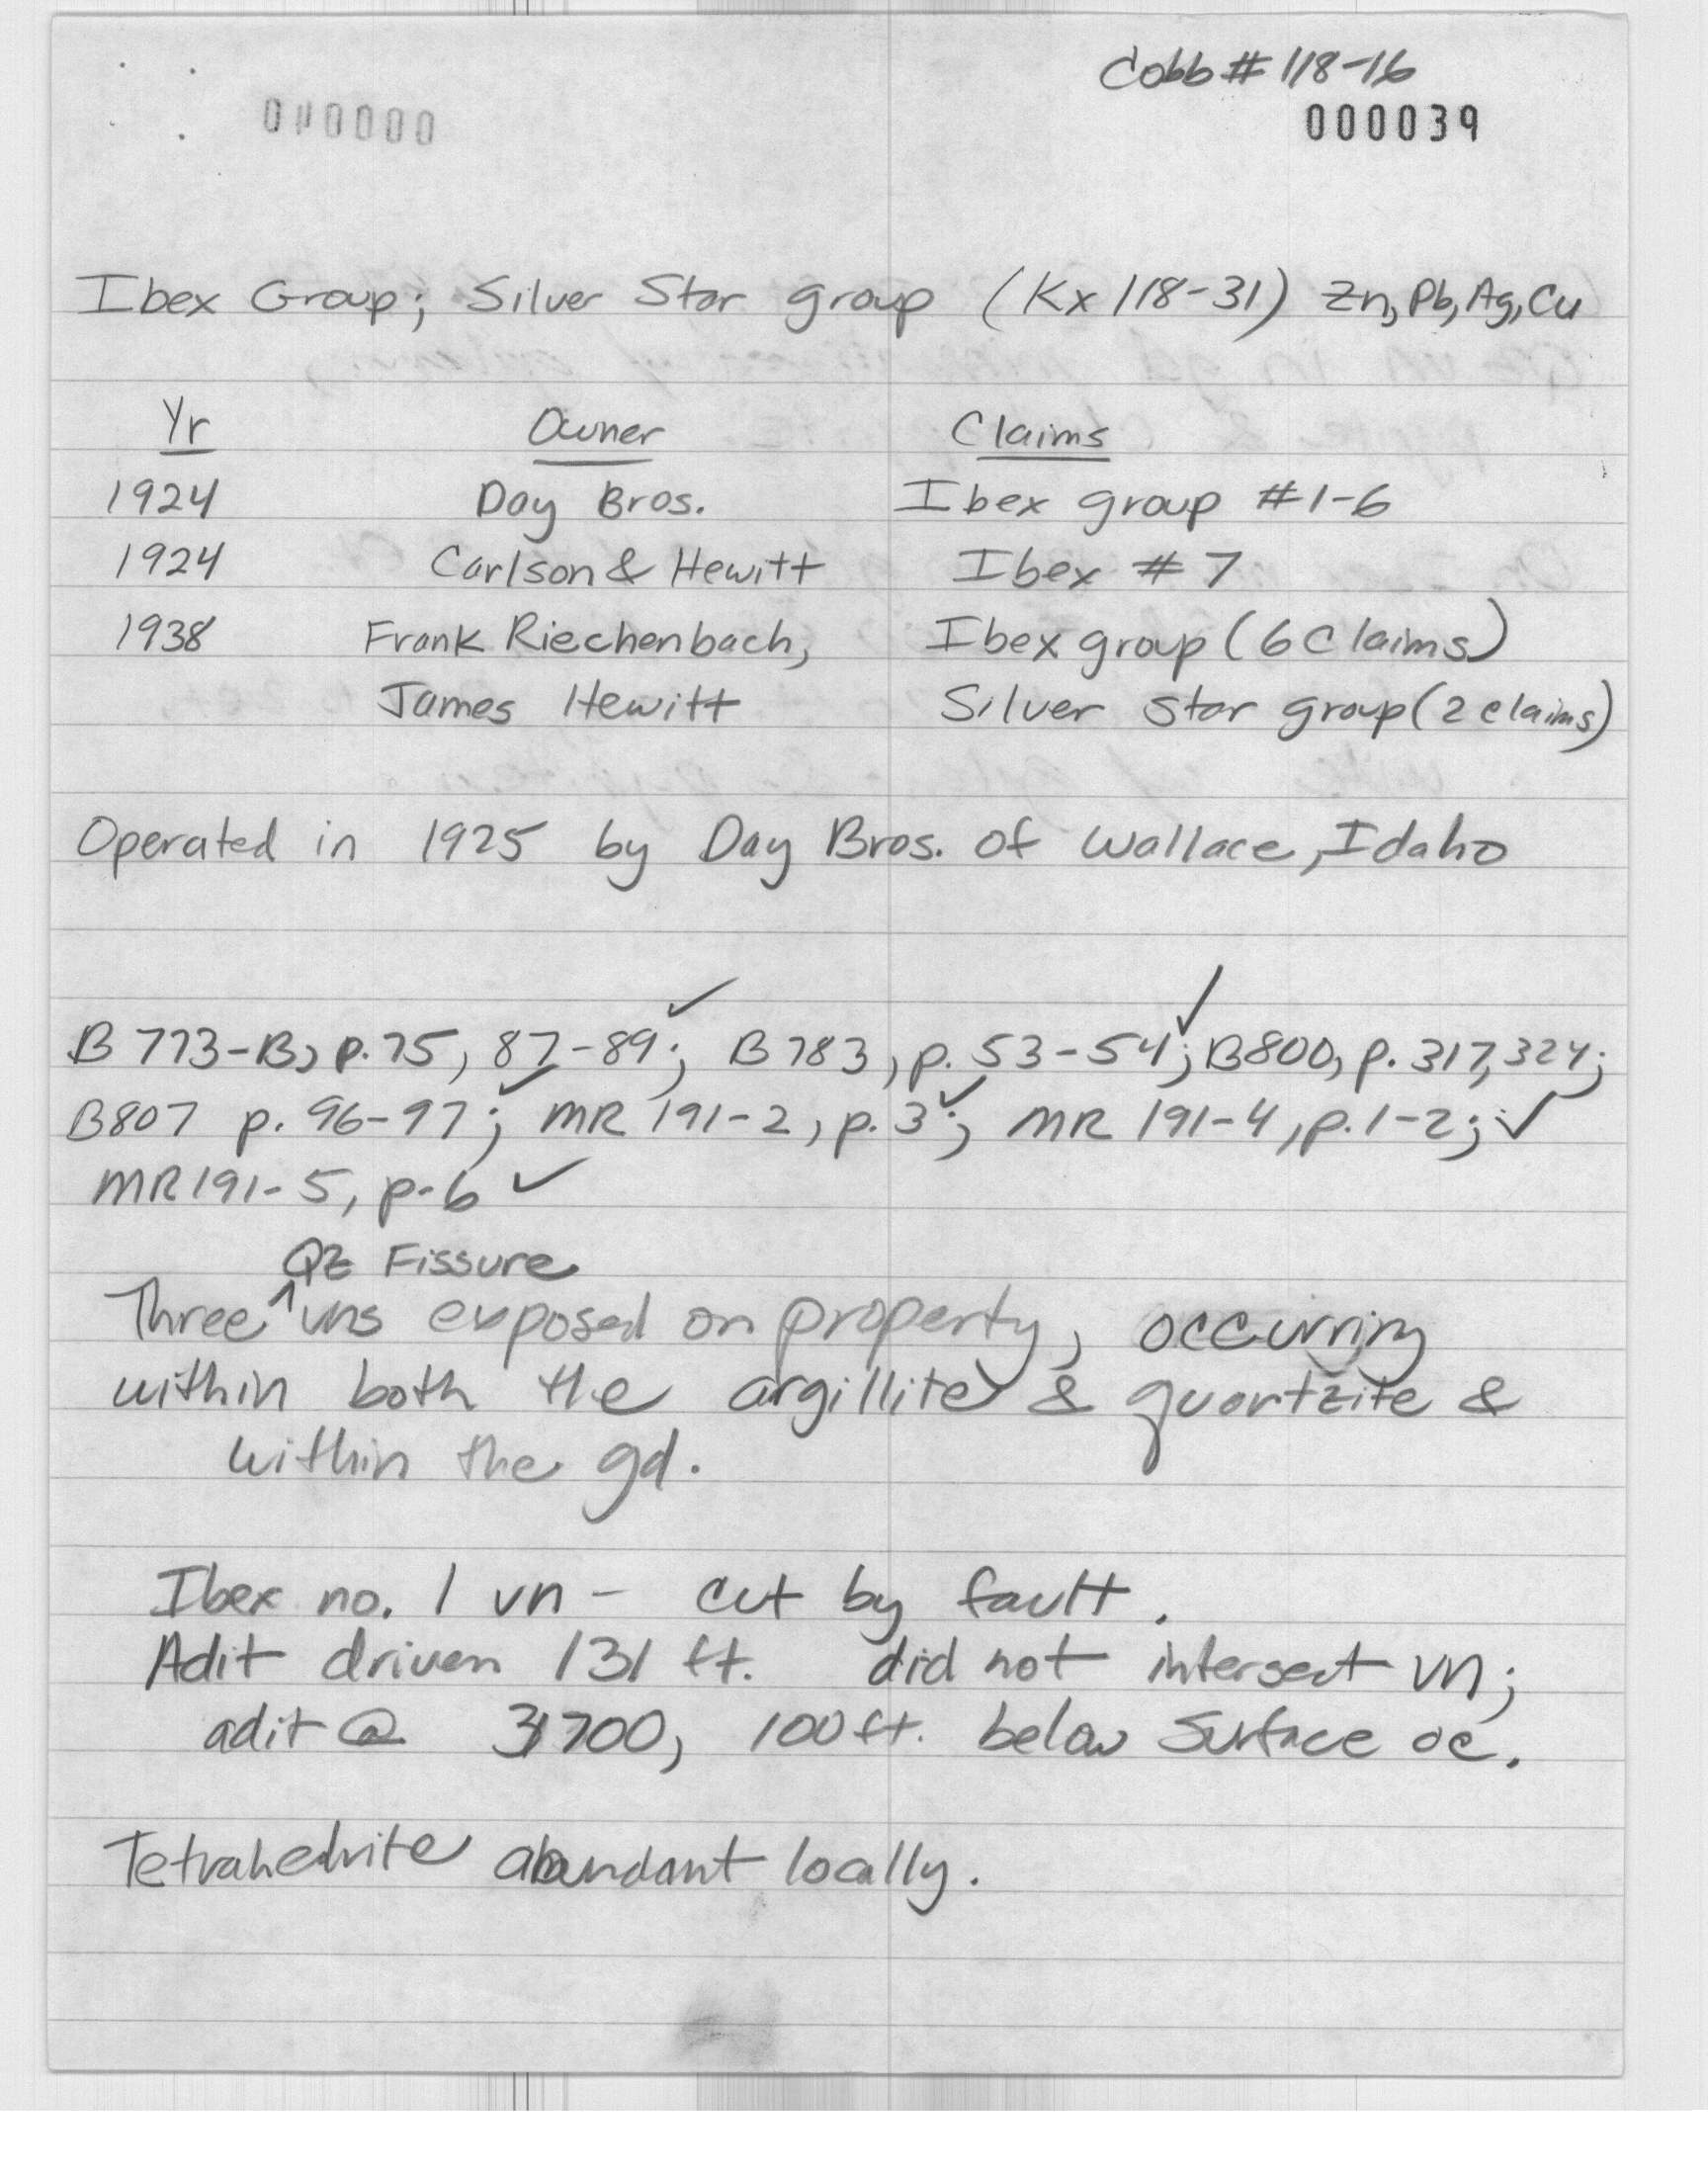 Cobb # 118-16
000000 000039
Ibex Group; Silver Star group (Kx 118-31) Zn, Pb, Ag, Cu
Yr Owner Claims
1924 Day Bros. Ibex group #1-6
1924 Carlson & Hewitt Ibex #7
1938 Frank Riechenbach, Ibex group (6 claims)
James Hewitt Silver Star group (2 claims)
Operated in 1925 by Day Bros. of Wallace, Idaho
B 773-B, p. 75, 87-89; ✓ B 783, p. 53-54; ✓ B800, p. 317, 324;
B807 p. 96-97; ✓ MR 191-2, p. 3; ✓ MR 191-4, p. 1-2; ✓
MR 191-5, p-6 ✓
Qz Fissure
Three ^ vns exposed on property, occurring
within both the argillite & quartzite &
within the gd.
Ibex no. 1 vn - cut by fault.
Adit driven 131 ft. did not intersect vn;
adit @ 3700, 100 ft. below surface oc.
Tetrahedrite abundant locally.